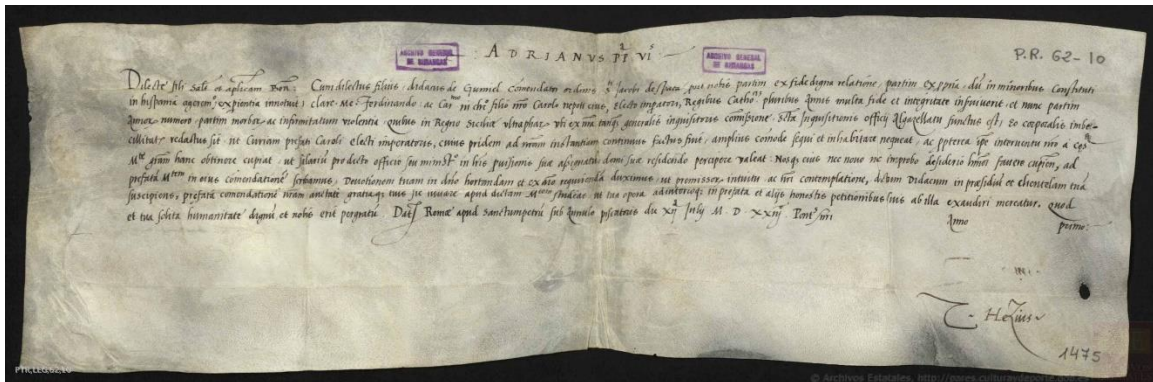 ADRIANVS PP VIs
ARCHIVO GENERAL
DE SIMANCAS
ARCHIVO GENERAL
DE SIMANCAS
P.R. 62-10
Dilecte fili Salt et aplicam Ben: Cum dilectus filius didacus de Gumiel comendator ordinis sti Jacobi de spata, put nobis partim ex fide digna relatione, partim ex ppria, dũ in minoribus constituti
in hispania agerem expientia innotuit, clare Me: ferdinando, ac Car mo in chro filio nro Carolo nepoti eius, electo imperatori, Regibus Cathcis, pluribus Annis multa fide et integritate inseruierit, et nunc partim
Annor numero, partim morbor, ac infirmitatum violentia, quibus in Regno Sicilie vltraphar, vbi ex nra tanq generalis inquisitoris comissione, Sctae Inquisitionis officij Algozellatu functus est, eo corporalis imbe-
cillitatis redactus sit, ut Curiam prefati Caroli electi imperatoris, cuius pridem ad nram instantiam continuus factus fuit, amplius comode sequi et inhabitare nequeat, ac pterea ipe interuentu nro a Ces
Mte gratiam hanc obtinere cupiat, ut salariũ predicto officio seu ministo in his prouisione sua assignatũ domi sua residendo percipere valeat. Nosq eius nec nouo nec improbo desiderio hmoi fauere cupien, ad
prefatã Mtem in eius comendatione scribamus, Deuotionem tuam in dno hortandam et ex aio requirendã duximus, ut promissor intuitu ac nri contemplatione, dictum Didacum in presidiũ et clientelam tuã
suscipiens, prefatã comendatione nram auctate gratiaq tua ita iuuare apud dictam Mtem studeas, ut tua opera adiutorioq in prefata et alijs honestis petitionibus suis ab illa exaudiri mereatur. quod
et tua solita humanitate dignũ et nobis erit pergratũ. Dat Rome apud sanctumpetrũ sub Annulo piscatoris die xij Julij M. D. xxiij Ponts nri Anno primo:
T. Hezius
1475
PTR,LEG,62,10
© Archivos Estatales, http://pares.culturaydeporte.gob.es